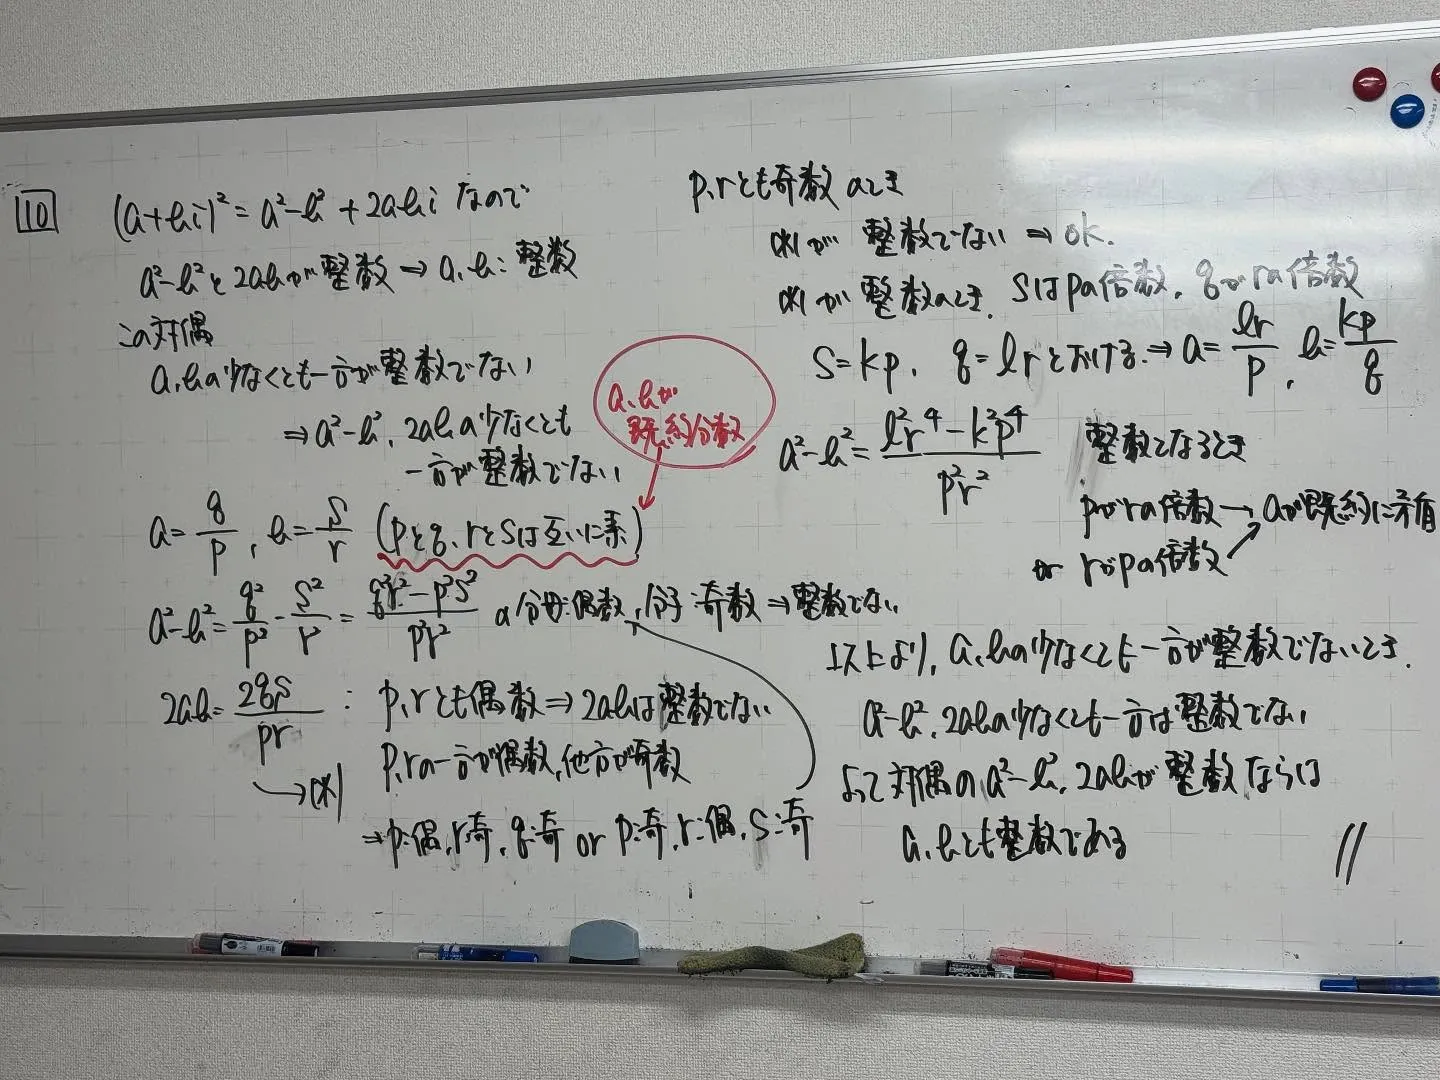 10
(a+bi)² = a²-b² + 2abi なので
a²-b²と2abが整数 ⇒ a, b : 整数
この対偶
a, bの少なくとも一方が整数でない
⇒ a²-b², 2abの少なくとも
一方が整数でない
a, bが
既約分数
a = q/p , b = s/r (pとq, rとsは互いに素)
a²-b² = q²/p² - s²/r² = (q²r²-p²s²)/(p²r²) の分母:偶数, 分子:奇数 ⇒ 整数でない
2ab = 2qs/pr : p, rとも偶数 ⇒ 2abは整数でない
→(※) p, rの一方が偶数, 他方が奇数
⇒ p:偶, r:奇, q:奇 or p:奇, r:偶, s:奇
p, rとも奇数のとき
(※)が整数でない ⇒ ok.
(※)が整数のとき, sはpの倍数, qがrの倍数
s = kp, q = lr とおける. ⇒ a = lr/p , b = kp/q
a²-b² = (l²r⁴-k²p⁴)/(p²r²) 整数となるとき
pがrの倍数 → aが既約に矛盾
or rがpの倍数
以上より, a, bの少なくとも一方が整数でないとき,
a²-b², 2abの少なくとも一方は整数でない
よって対偶の a²-b², 2abが整数ならば
a, bとも整数である //